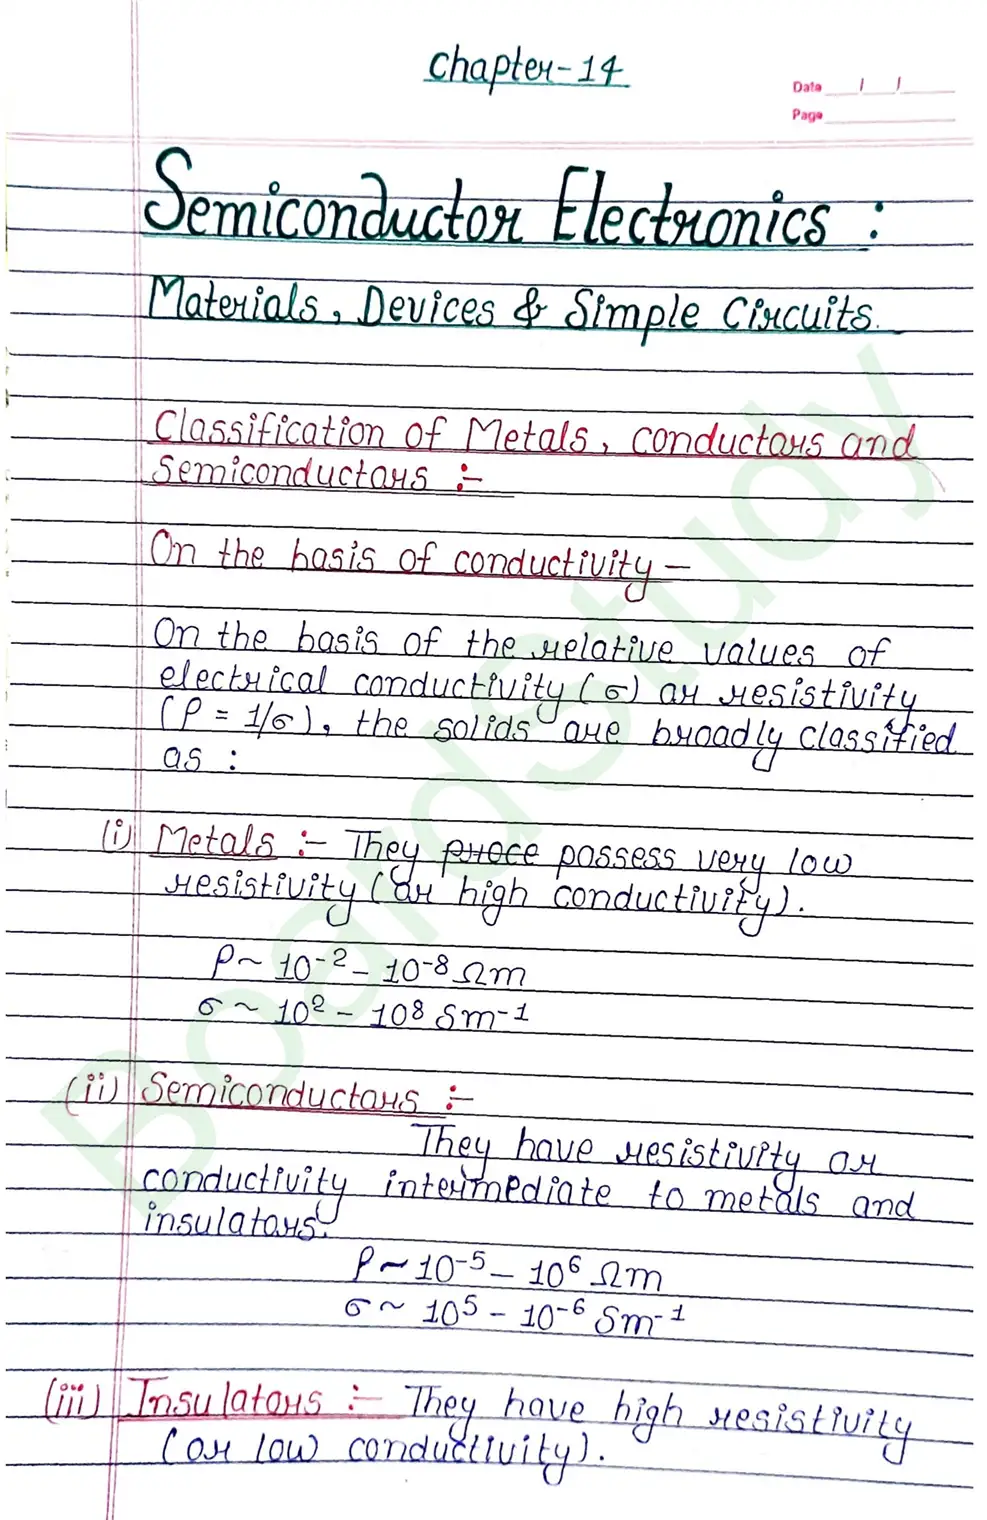 Chapter-14
Date / /
Page
Semiconductor Electronics :
Materials, Devices & Simple Circuits.
Classification of Metals, conductors and
Semiconductors :-
On the basis of conductivity -
On the basis of the relative values of
electrical conductivity (σ) or resistivity
(ρ = 1/σ), the solids are broadly classified
as :
(i) Metals :- They proce possess very low
resistivity (or high conductivity).
ρ ~ 10⁻² - 10⁻⁸ Ωm
σ ~ 10² - 10⁸ Sm⁻¹
(ii) Semiconductors :-
They have resistivity or
conductivity intermediate to metals and
insulators.
ρ ~ 10⁻⁵ - 10⁶ Ωm
σ ~ 10⁵ - 10⁻⁶ Sm⁻¹
(iii) Insulators :- They have high resistivity
(or low conductivity).
BoardStudy